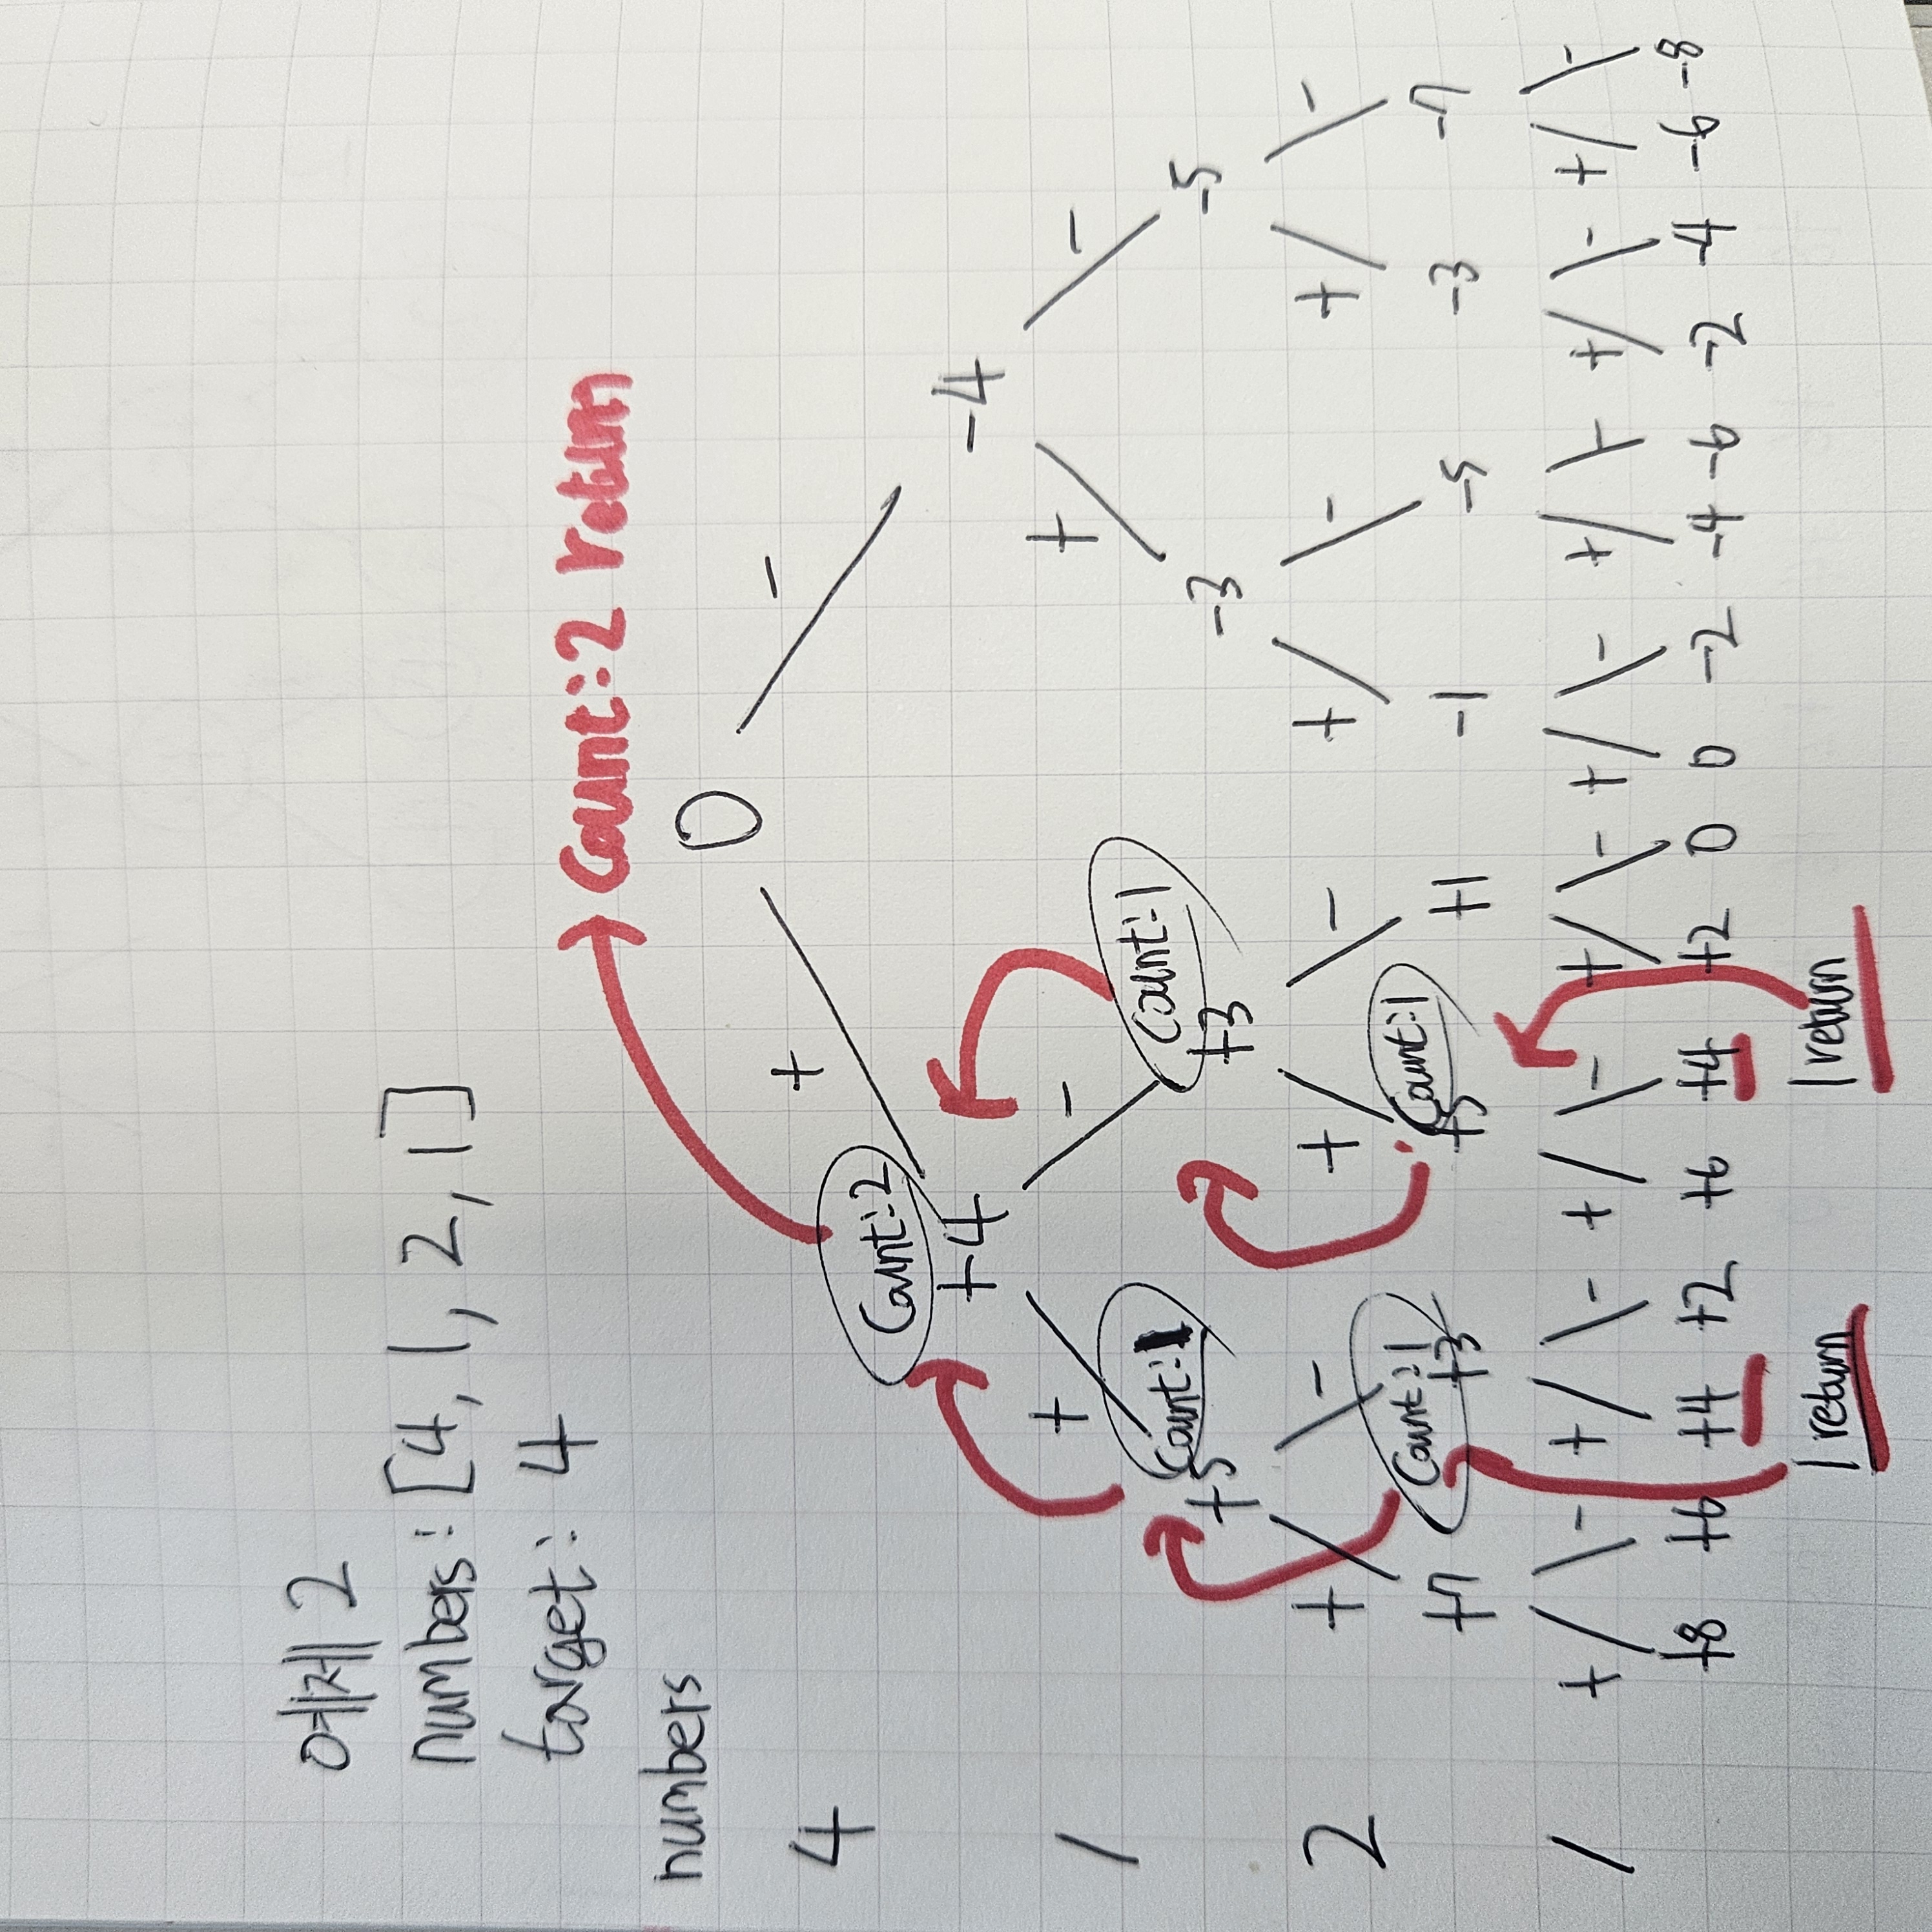 예제 2
numbers: [4, 1, 2, 1]
target: 4
Count:2 return
numbers
0
4 + -
Count:2
+4 -4
1 + - + -
Count:1 Count:1
+5 +3 -3 -5
2 + - + - + - + -
Count:1 Count:1
+7 +3 +5 +1 -1 -5 -3 -7
1 + - + - + - + - + - + - + - + -
+8 +6 +4 +2 +6 +4 +2 0 0 -2 -4 -6 -2 -4 -6 -8
1 return 1 return